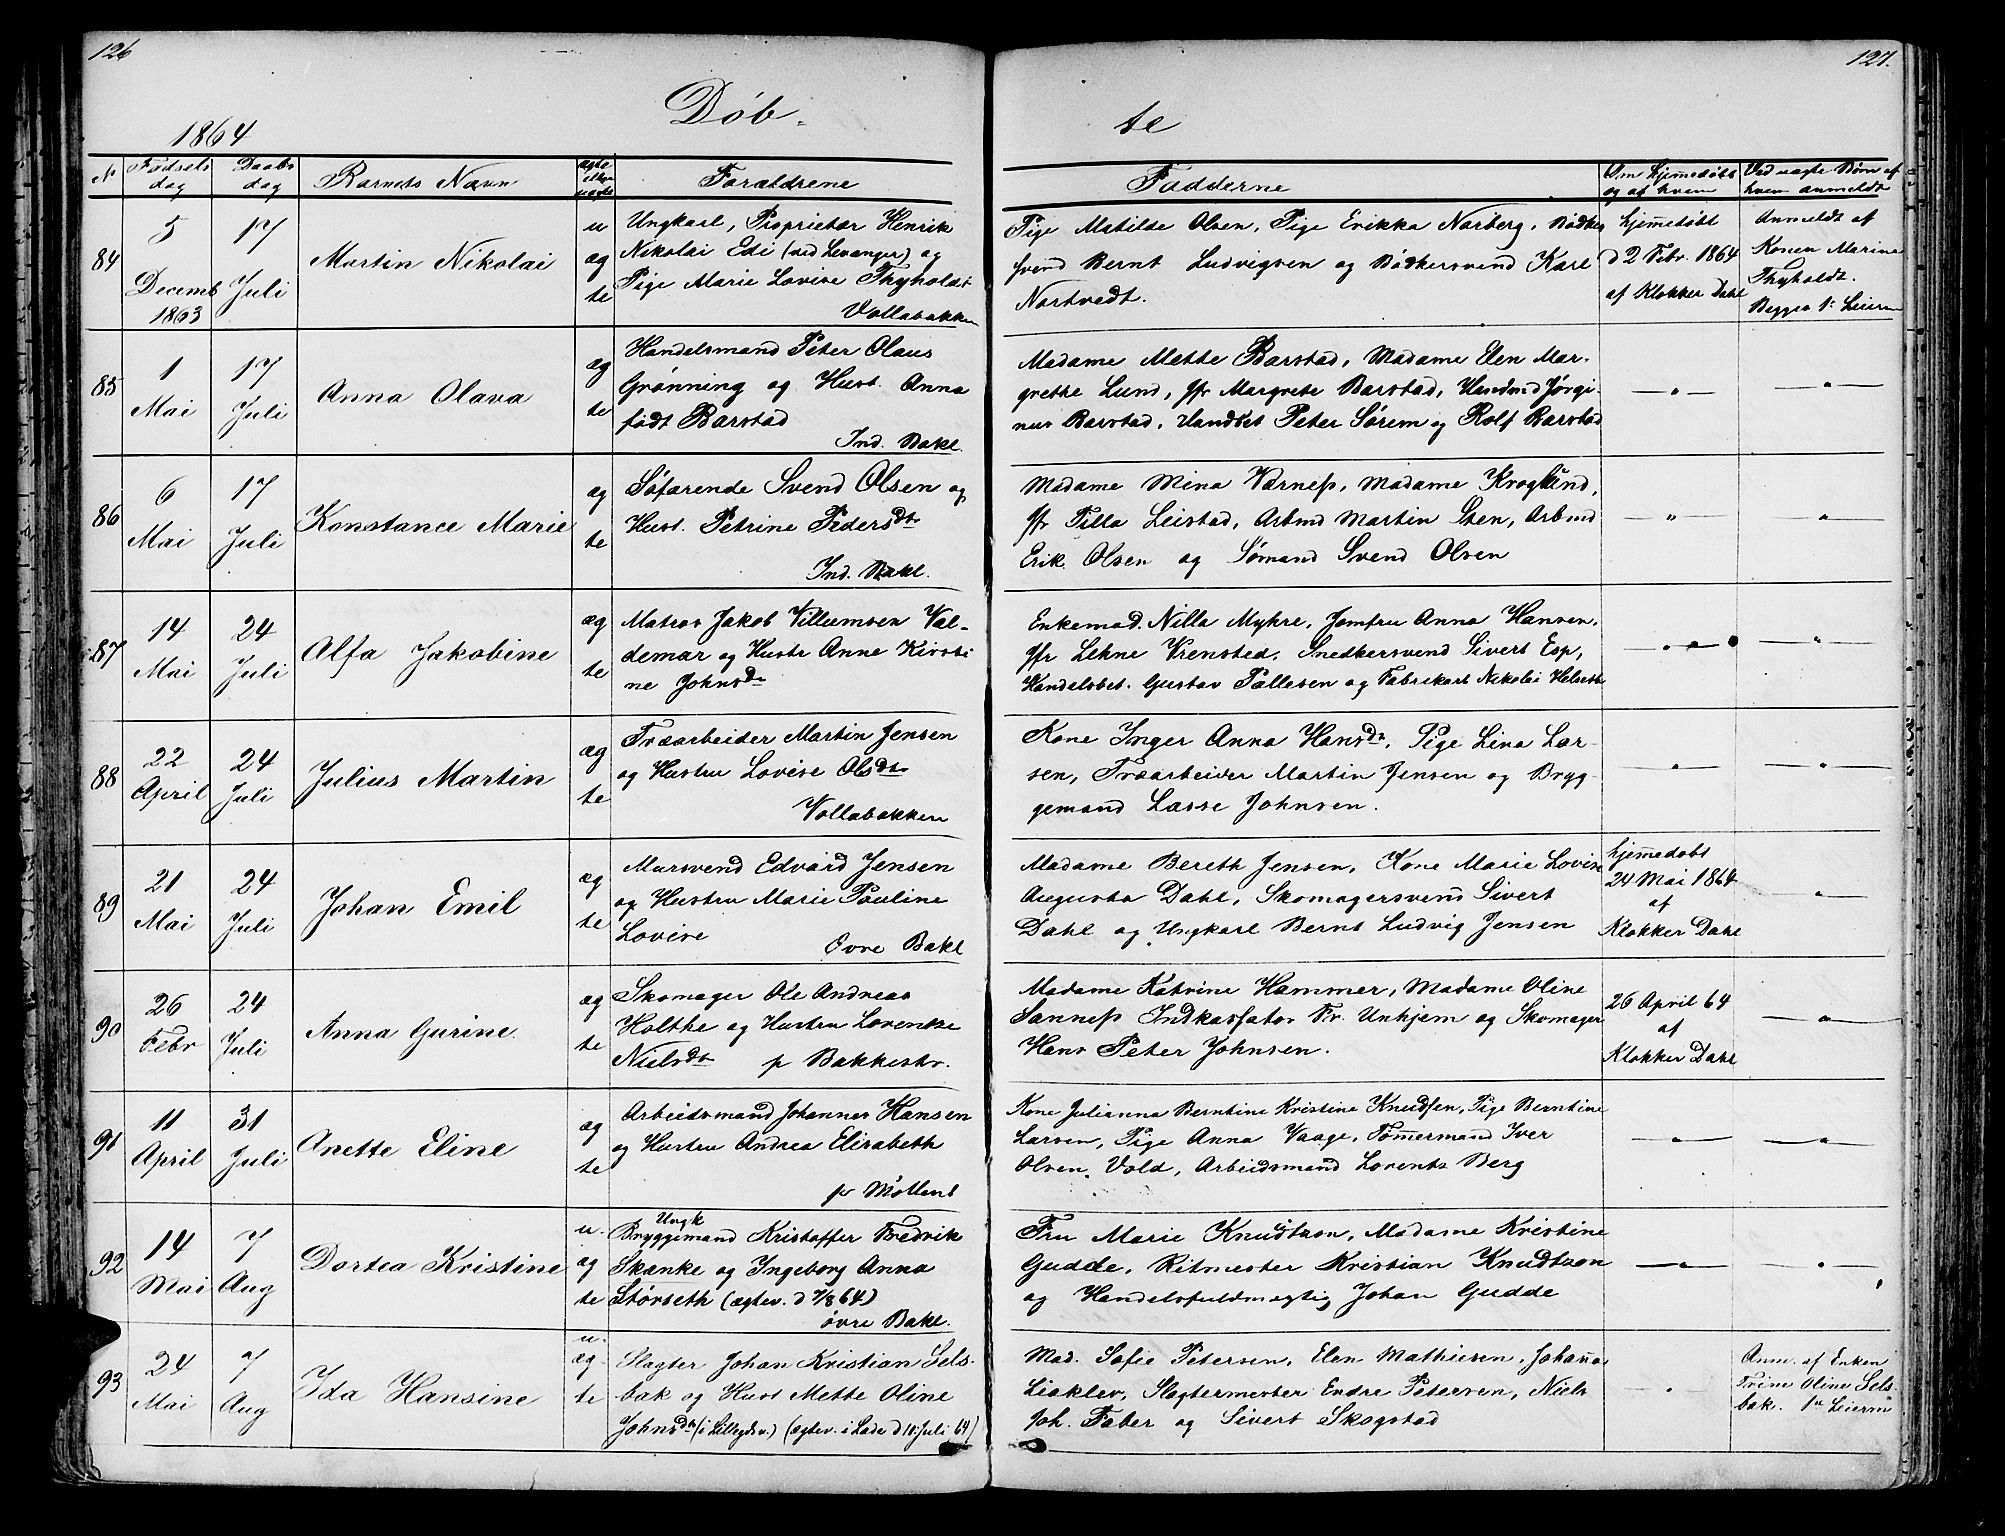 126
127.
Döb-
te
1864
N
Fødsels
dag
Daabs
dag
Barnets Navn
ægte
eller
uægte
Forældrene
Fadderne
Om hjemmedöbt
og af hvem
Ved uægte Börn af
hvem anmeldt
84
5
Decemb
1863
17
Juli
Martin Nikolai
u
æg
te
Ungkarl, Proprietær Henrik
Nikolai Edi (ved Levanger) og
Pige Marie Lovise Thyholdt
Vollabakken
Pige Matilde Olsen, Pige Erikka Norberg, Bödker
svend Bernt Ludvigsen og Bödkersvend Karl
Nortvedt.
hjem̅edöbt
d 2 Febr. 1864
af Klokker Dahl
Anmeldt af
Konen Marine
Thyholdt.
Begges 1ste Leierm
85
1
Mai
17
Juli
Anna Olava
æg
te
Handelsmand Peter Olaus
Grönning og Hust. Anna
födt Barstad
Ind. Bakl.
Madame Mette Barstad, Madame Elen Mar-
grethe Lund, Jfr Margrete Barstad, Handmd Jörgi-
nus Barstad, Handbet Peter Sörem og Rolf Barstad
— " —
— " —
86
6
Mai
17
Juli
Konstance Marie
æg
te
Söfarende Svend Olsen og
Hust. Petrine Pedersdtr
Ind. Bakl.
Madame Mina Værness, Madame Kroglund,
Jfr Tilla Leistad, Arbmd Martin Sten, Arbmd
Erik Olsen og Sömand Svend Olsen
— " —
— " —
87
14
Mai
24
Juli
Alfa Jakobine
æg
te
Matros Jakob Villumsen Val-
demar og Hustr Anne Kirsti
ne Johnsdr
Enkemad. Nilla Myhre, Jomfru Anna Hansen,
Jfr Lehne Vrensted, Snedkersvend Sivert Esp,
Handelsbet. Gustav Pallesen og Fabrikarb Nikolai Helseth
— " —
— " —
88
22
April
24
Juli
Julius Martin
æg
te
Træarbeider Martin Jensen
og Hustru Lovise Olsdtr
Vollabakken
Kone Inger Anna Hansdr, Pige Lina Lar-
sen, Træarbeider Martin Jensen og Bryg-
gemand Lasse Johnsen.
— " —
— " —
89
21
Mai
24
Juli
Johan Emil
æg
te
Mursvend Edvard Jensen
og Hustru Marie Pauline
Lovise Övre Bakl
Madame Bereth Jensen, Kone Marie Lovise
Augusta Dahl, Skomagersvend Sivert
Dahl og Ungkarl Bernt Ludvig Jensen
hjem̅edøbt
24 Mai 1864
af
Klokker Dahl
— " —
90
26
Febr
24
Juli
Anna Gurine
æg
te
Skomager Ole Andreas
Holthe og Hustru Lorentze
Nielsdtr p Bakkestr.
Madame Katrine Hammer, Madame Oline
Sanness Indkassator Fr. Unhjem og Skomager
Hans Peter Johnsen.
26 April 64
af
Klokker Dahl
— " —
91
11
April
31
Juli
Anette Eline
æg
te
Arbeidsmand Johannes Hansen
og Hustru Andrea Elisabeth
pr Möllenb
Kone Julianna Berntine Kristine Knudsen, Pige Berntine
Larsen, Pige Anna Vaage, Töm̅ermand Iver
Olsen Vold, Arbeidsmand Lorents Berg
— " —
— " —
92
14
Mai
7
Aug
Dortea Kristine
u.
æg
te
Ungk
Bryggemand Kristoffer Fredrik
Skanke og Ingeborg Anna
Störseth (ægtev. d 7/8 64)
övre Bakl.
Fru Marie Knudtzon, Madame Kristine
Gudde, Ritmester Kristian Knudtzon
og Handelsfuldmægtig Johan Gudde
— " —
— " —
93
24
Mai
7
Aug
Ida Hansine
u.
æg-
te
Slagter Johan Kristian Sels-
bak og Hust Mette Oline
Johnsdtr (i Lillegdsv.) (ægtev. i Lade d 10. Juli 64)
Mad. Sofie Petersen, Elen Mathiesen, Johanna
Lioklev, Slagtermester Endre Petersen, Niels
Joh. Faber og Sivert Skogstad
— " —
Anm. af Enken
Trine Oline Sels
bak. 1ste Leierm